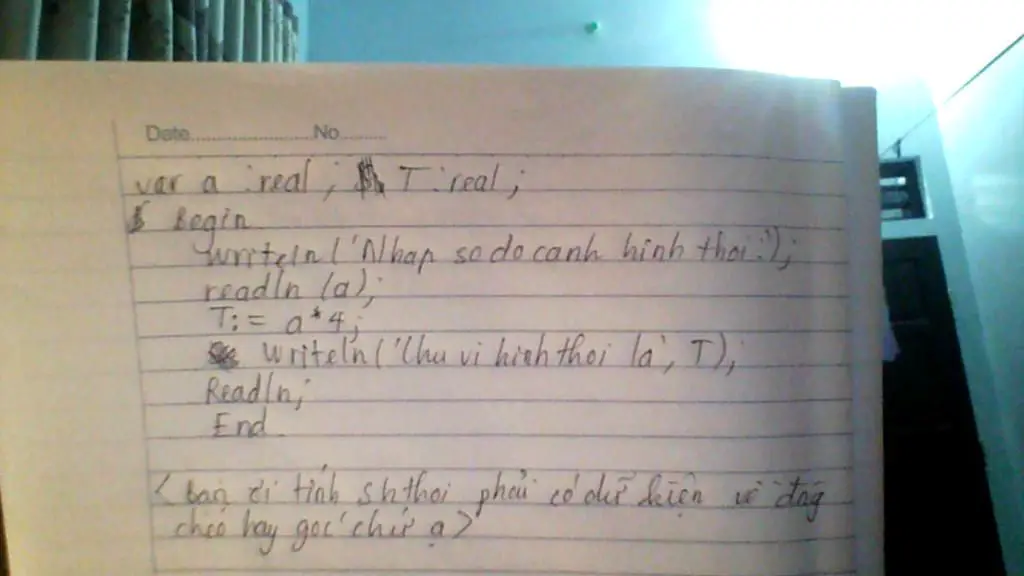 Date No
var a : real ; T : real ;
Begin
writeln ('Nhap so do canh hinh thoi:');
readln (a);
T: = a*4;
writeln ('Chu vi hinh thoi la', T);
Readln;
End
<bạn ơi tính shthoi phải có dữ kiện về đng
chéo hay góc chứ ạ>